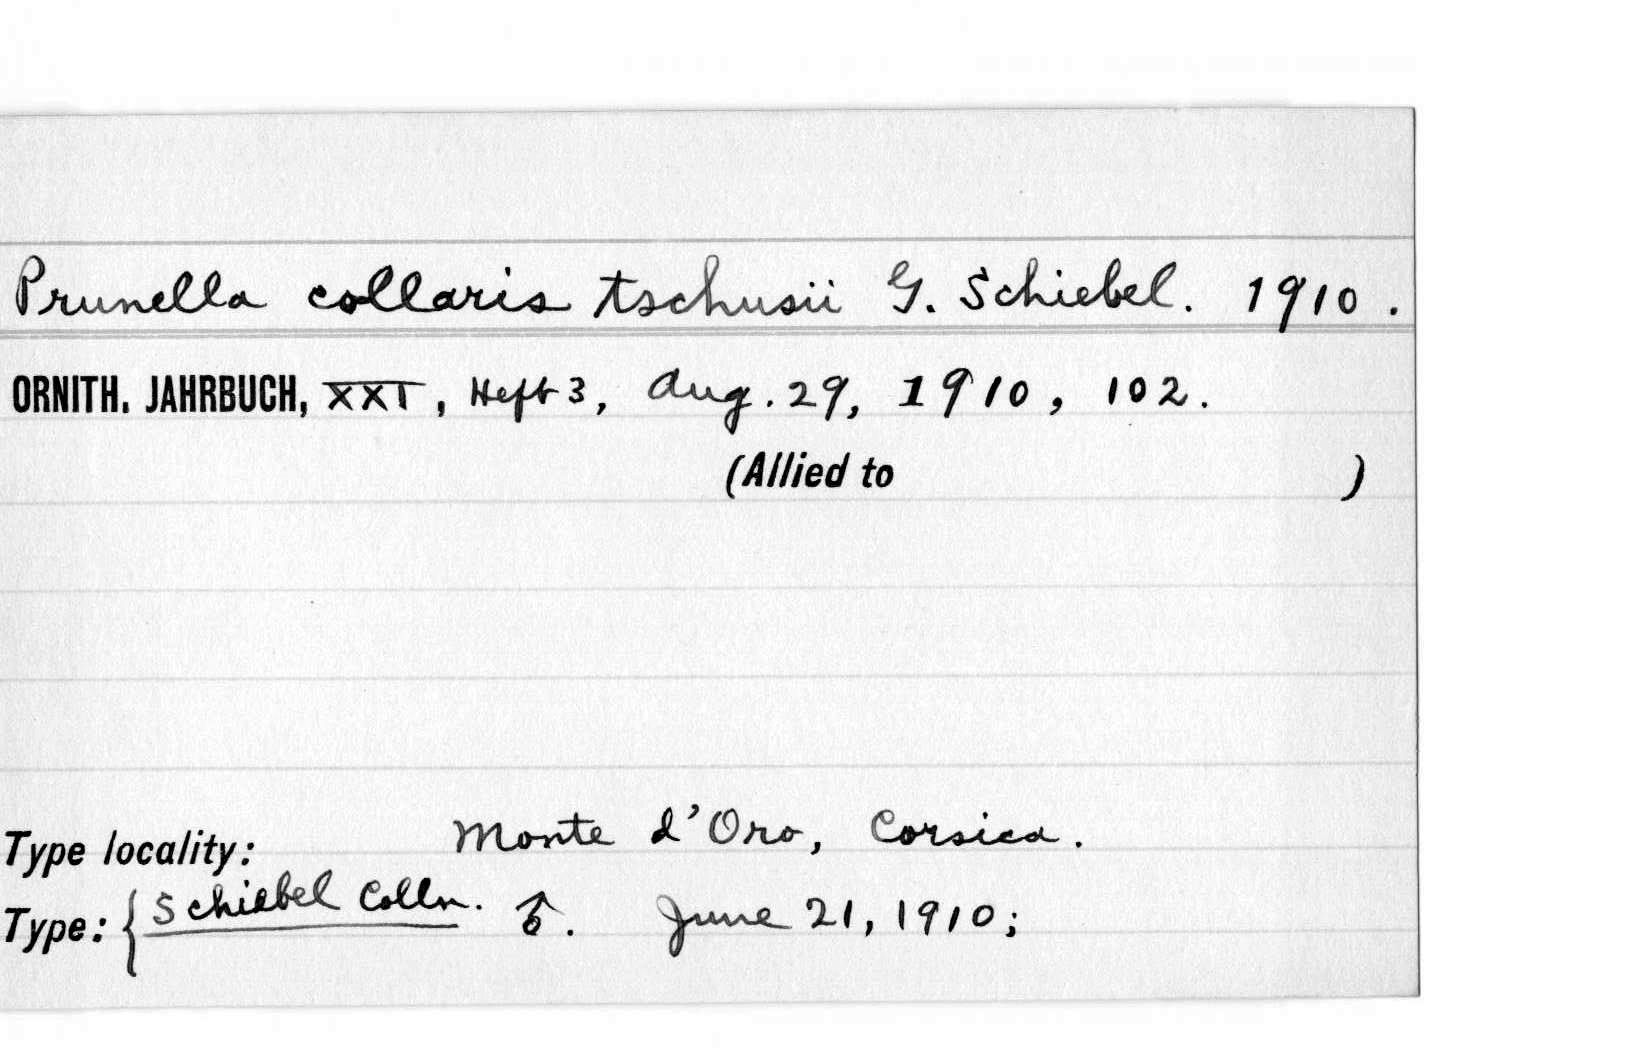 Prunella collaris tschusii G. Schiebel. 1910.
ORNITH. JAHRBUCH, XXI, Heft 3, Aug. 29, 1910, 102.
(Allied to )
Type locality: Monte d'Oro, Corsica.
Type: { Schiebel Colln. ♂. June 21, 1910;